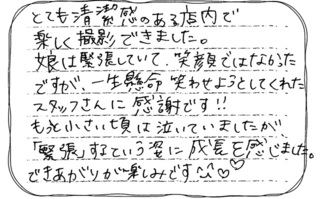 とても清潔感のある店内で
楽しく撮影できました。
娘は緊張していて、笑顔ではなかった
ですが、一生懸命 笑わせようとしてくれた
スタッフさんに 感謝です!!
もっと小さい頃は泣いていましたが
「緊張」するという姿に 成長を感じました。
できあがりが楽しみです♡♡